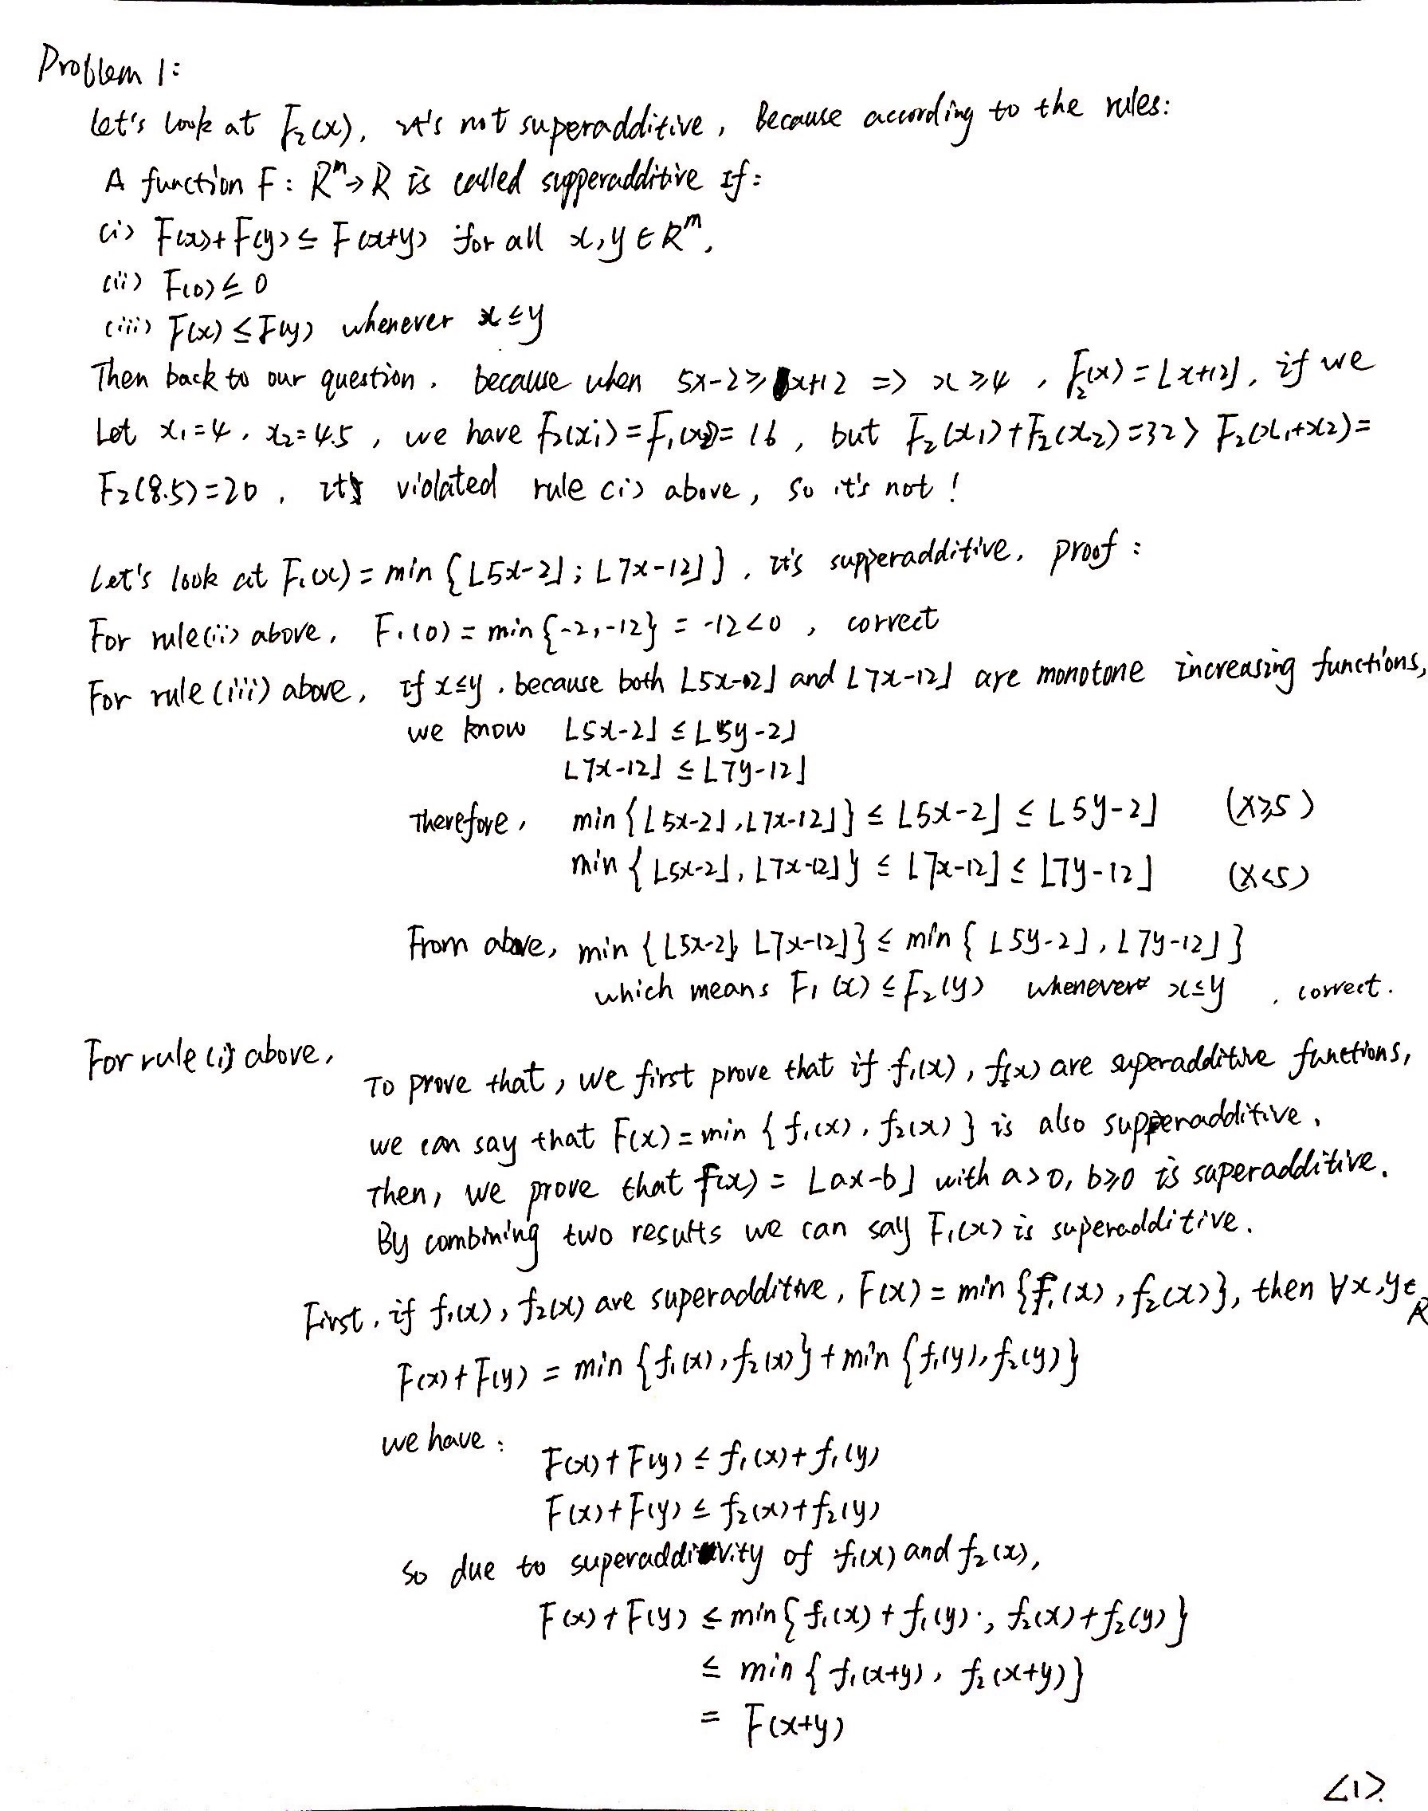 Problem 1:
Let's look at F₂(x), it's not superadditive, Because according to the rules:
A function F: Rᵐ→R is called supperadditive If:
(i) F(x)+F(y) ≤ F(x+y) for all x,y ∈ Rᵐ,
(ii) F(0) ≤ 0
(iii) F(x) ≤ F(y) whenever x ≤ y
Then back to our question, because when 5x-2 ≥ x+12 => x ≥ 4, F₂(x) = ⌊x+12⌋, if we
Let x₁=4, x₂=4.5, we have F₂(x₁) = F₁(x₂) = 16, but F₂(x₁)+F₂(x₂)=32 > F₂(x₁+x₂)=
F₂(8.5)=20, it's violated rule (i) above, so it's not!
Let's look at F₁(x) = min {⌊5x-2⌋; ⌊7x-12⌋}, it's supperadditive, proof:
For rule(ii) above, F₁(0) = min {-2,-12} = -12<0, correct
For rule (iii) above, if x≤y, because both ⌊5x-2⌋ and ⌊7x-12⌋ are monotone increasing functions,
we know ⌊5x-2⌋ ≤ ⌊5y-2⌋
⌊7x-12⌋ ≤ ⌊7y-12⌋
Therefore, min {⌊5x-2⌋, ⌊7x-12⌋} ≤ ⌊5x-2⌋ ≤ ⌊5y-2⌋ (x≥5)
min {⌊5x-2⌋, ⌊7x-12⌋} ≤ ⌊7x-12⌋ ≤ ⌊7y-12⌋ (x<5)
From above, min {⌊5x-2⌋, ⌊7x-12⌋} ≤ min {⌊5y-2⌋, ⌊7y-12⌋}
which means F₁(x) ≤ F₂(y) whenever x≤y, correct.
For rule (i) above,
To prove that, we first prove that if f₁(x), f₂(x) are superadditive functions,
we can say that F(x) = min {f₁(x), f₂(x)} is also supperadditive.
Then, we prove that f(x) = ⌊ax-b⌋ with a>0, b≥0 is superadditive.
By combining two results we can say F₁(x) is superadditive.
First, if f₁(x), f₂(x) are superadditive, F(x) = min {f₁(x), f₂(x)}, then ∀x,y∈R
F(x)+F(y) = min {f₁(x), f₂(x)} + min {f₁(y), f₂(y)}
we have:
F(x)+F(y) ≤ f₁(x)+f₁(y)
F(x)+F(y) ≤ f₂(x)+f₂(y)
so due to superadditivity of f₁(x) and f₂(x),
F(x)+F(y) ≤ min{f₁(x)+f₁(y), f₂(x)+f₂(y)}
≤ min {f₁(x+y), f₂(x+y)}
= F(x+y)
<1>.